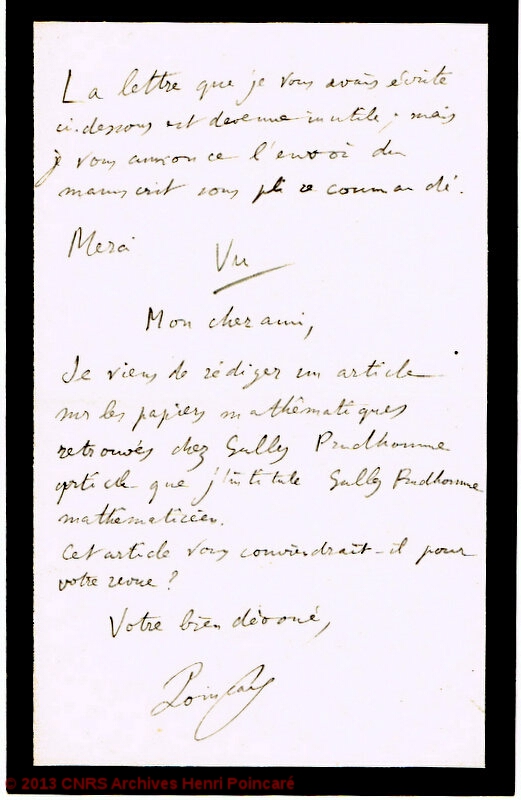 La lettre que je vous avais écrite
ci-dessous est devenue inutile ; mais
je vous annonce l'envoi du
manuscrit sous pli recommandé.
Merci
Vu
Mon cher ami,
Je viens de rédiger un article
sur les papiers mathématiques
retrouvés chez Sully Prudhomme
article que j'intitule Sully Prudhomme
mathématicien.
Cet article vous conviendrait-il pour
votre revue ?
Votre bien dévoué,
Poincaré
© 2013 CNRS Archives Henri Poincaré